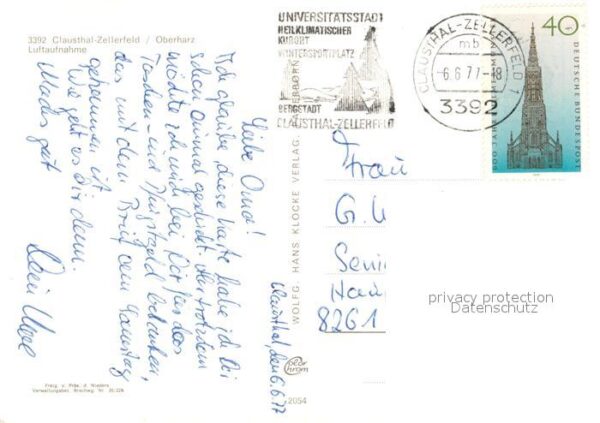 3392 Clausthal-Zellerfeld / Oberharz
Luftaufnahme
UNIVERSITÄTSSTADT
HEILKLIMATISCHER
KURORT
WINTERSPORTPLATZ
BERGSTADT
CLAUSTHAL-ZELLERFELD
CLAUSTHAL-ZELLERFELD 1
mb
-6.6.77-18
3392
40
DEUTSCHE BUNDESPOST
Clausthal, den 6.6.77
Liebe Oma!
Ich glaube, diese Karte habe ich Dir
schon einmal geschickt. Aber trotzdem
möchte ich mich bei Dir für das
Taschen- und geld bedanken,
das mit dem Brief am Samstag
gekommen ist.
Wie geht es Dir denn.
Machs gut
Dein Uwe
WOLFG. HANS KLOCKE VERLAG, PADERBORN
Frau
G. U
Seni
Hau
8261
privacy protection
Datenschutz
Color
chrom
2054
Freig. v. Präs. d. Nieders.
Verwaltungsbez. Brschwg. Nr.